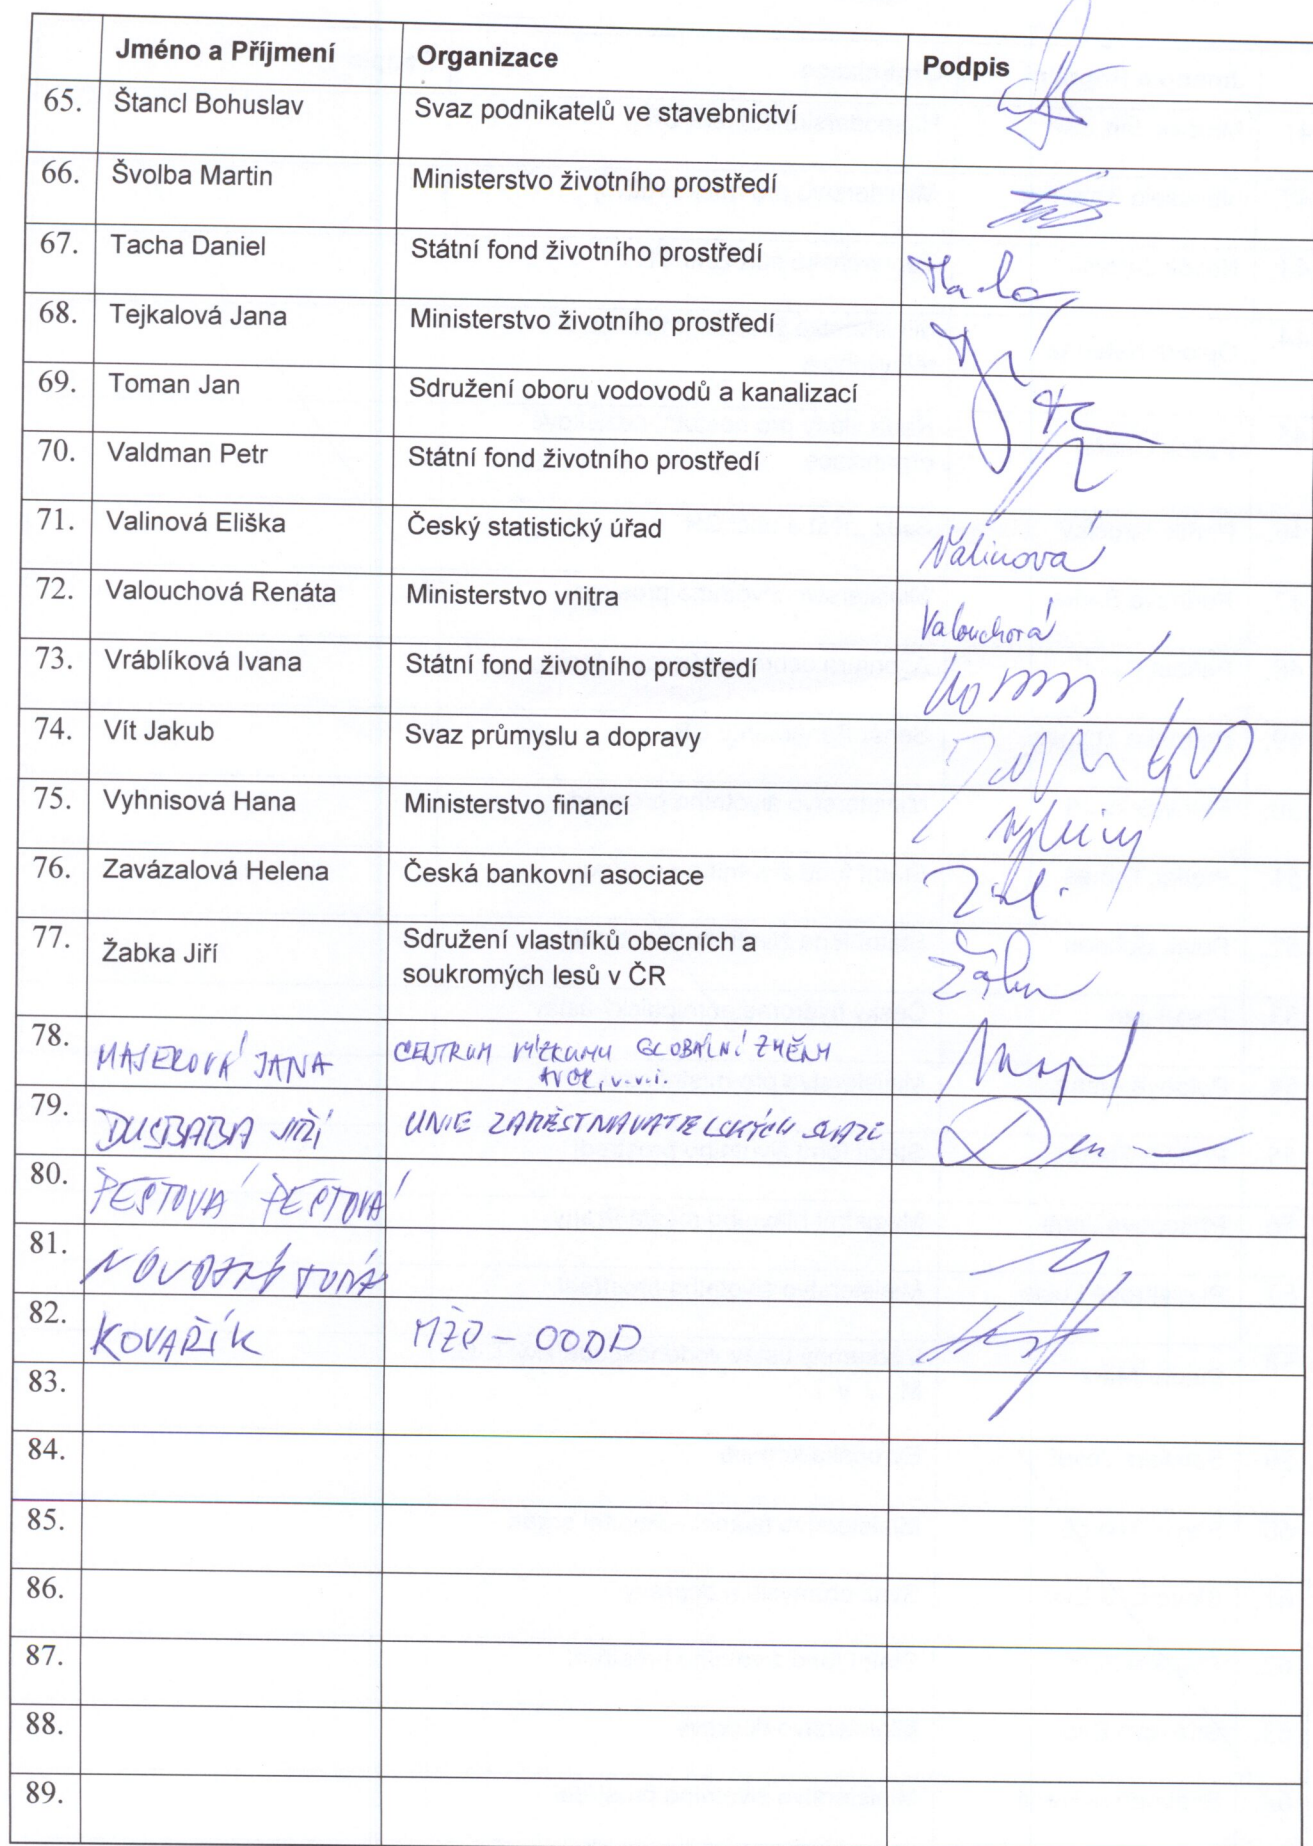 Jméno a Příjmení Organizace Podpis
65. Štancl Bohuslav Svaz podnikatelů ve stavebnictví
66. Švolba Martin Ministerstvo životního prostředí
67. Tacha Daniel Státní fond životního prostředí
68. Tejkalová Jana Ministerstvo životního prostředí
69. Toman Jan Sdružení oboru vodovodů a kanalizací
70. Valdman Petr Státní fond životního prostředí
71. Valinová Eliška Český statistický úřad Valinová
72. Valouchová Renáta Ministerstvo vnitra Valouchová
73. Vráblíková Ivana Státní fond životního prostředí
74. Vít Jakub Svaz průmyslu a dopravy
75. Vyhnisová Hana Ministerstvo financí
76. Zavázalová Helena Česká bankovní asociace
77. Žabka Jiří Sdružení vlastníků obecních a
soukromých lesů v ČR
78. MAJEROVÁ JANA CENTRUM VÝZKUMU GLOBÁLNÍ ZMĚNY
AVČR, v.v.i.
79. JIŘÍ UNIE ZAMĚSTNAVATELSKÝCH SVAZŮ
80. PEŠTOVÁ PEŠTOVÁ
81.
82. KOVAŘÍK MŽP - OODP
83.
84.
85.
86.
87.
88.
89.